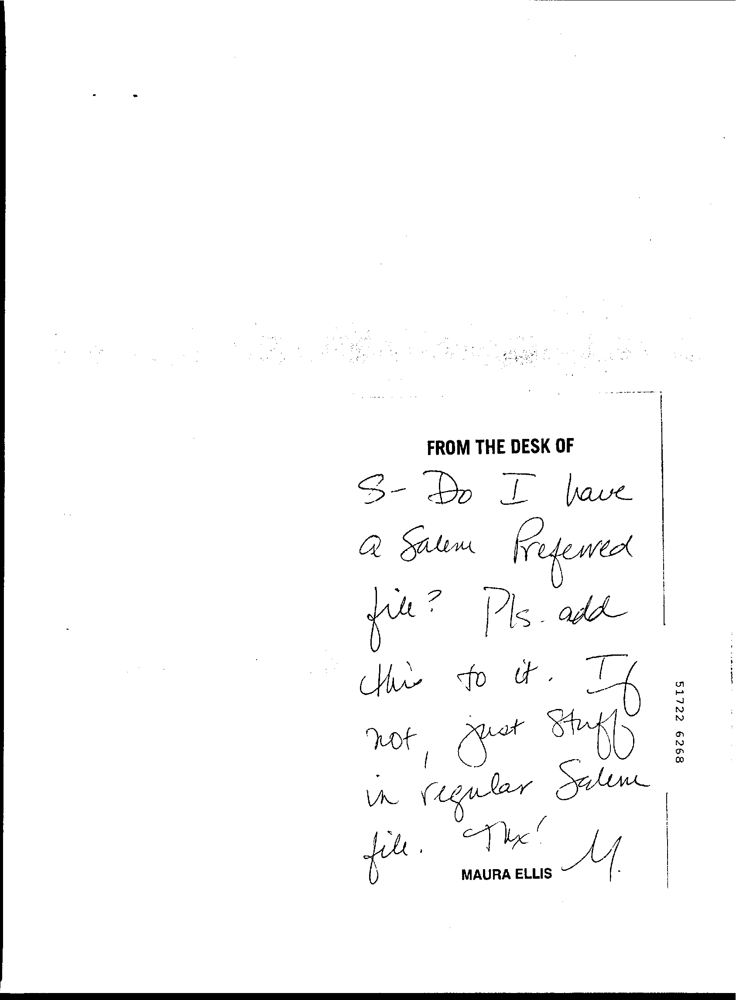 FROM THE DESK OF
S- Do I have
a Salem Preferred
file? Pls. add
this to it. If
not, just stuff
in regular Salem
file. Thx!
M.
MAURA ELLIS
51722 6268